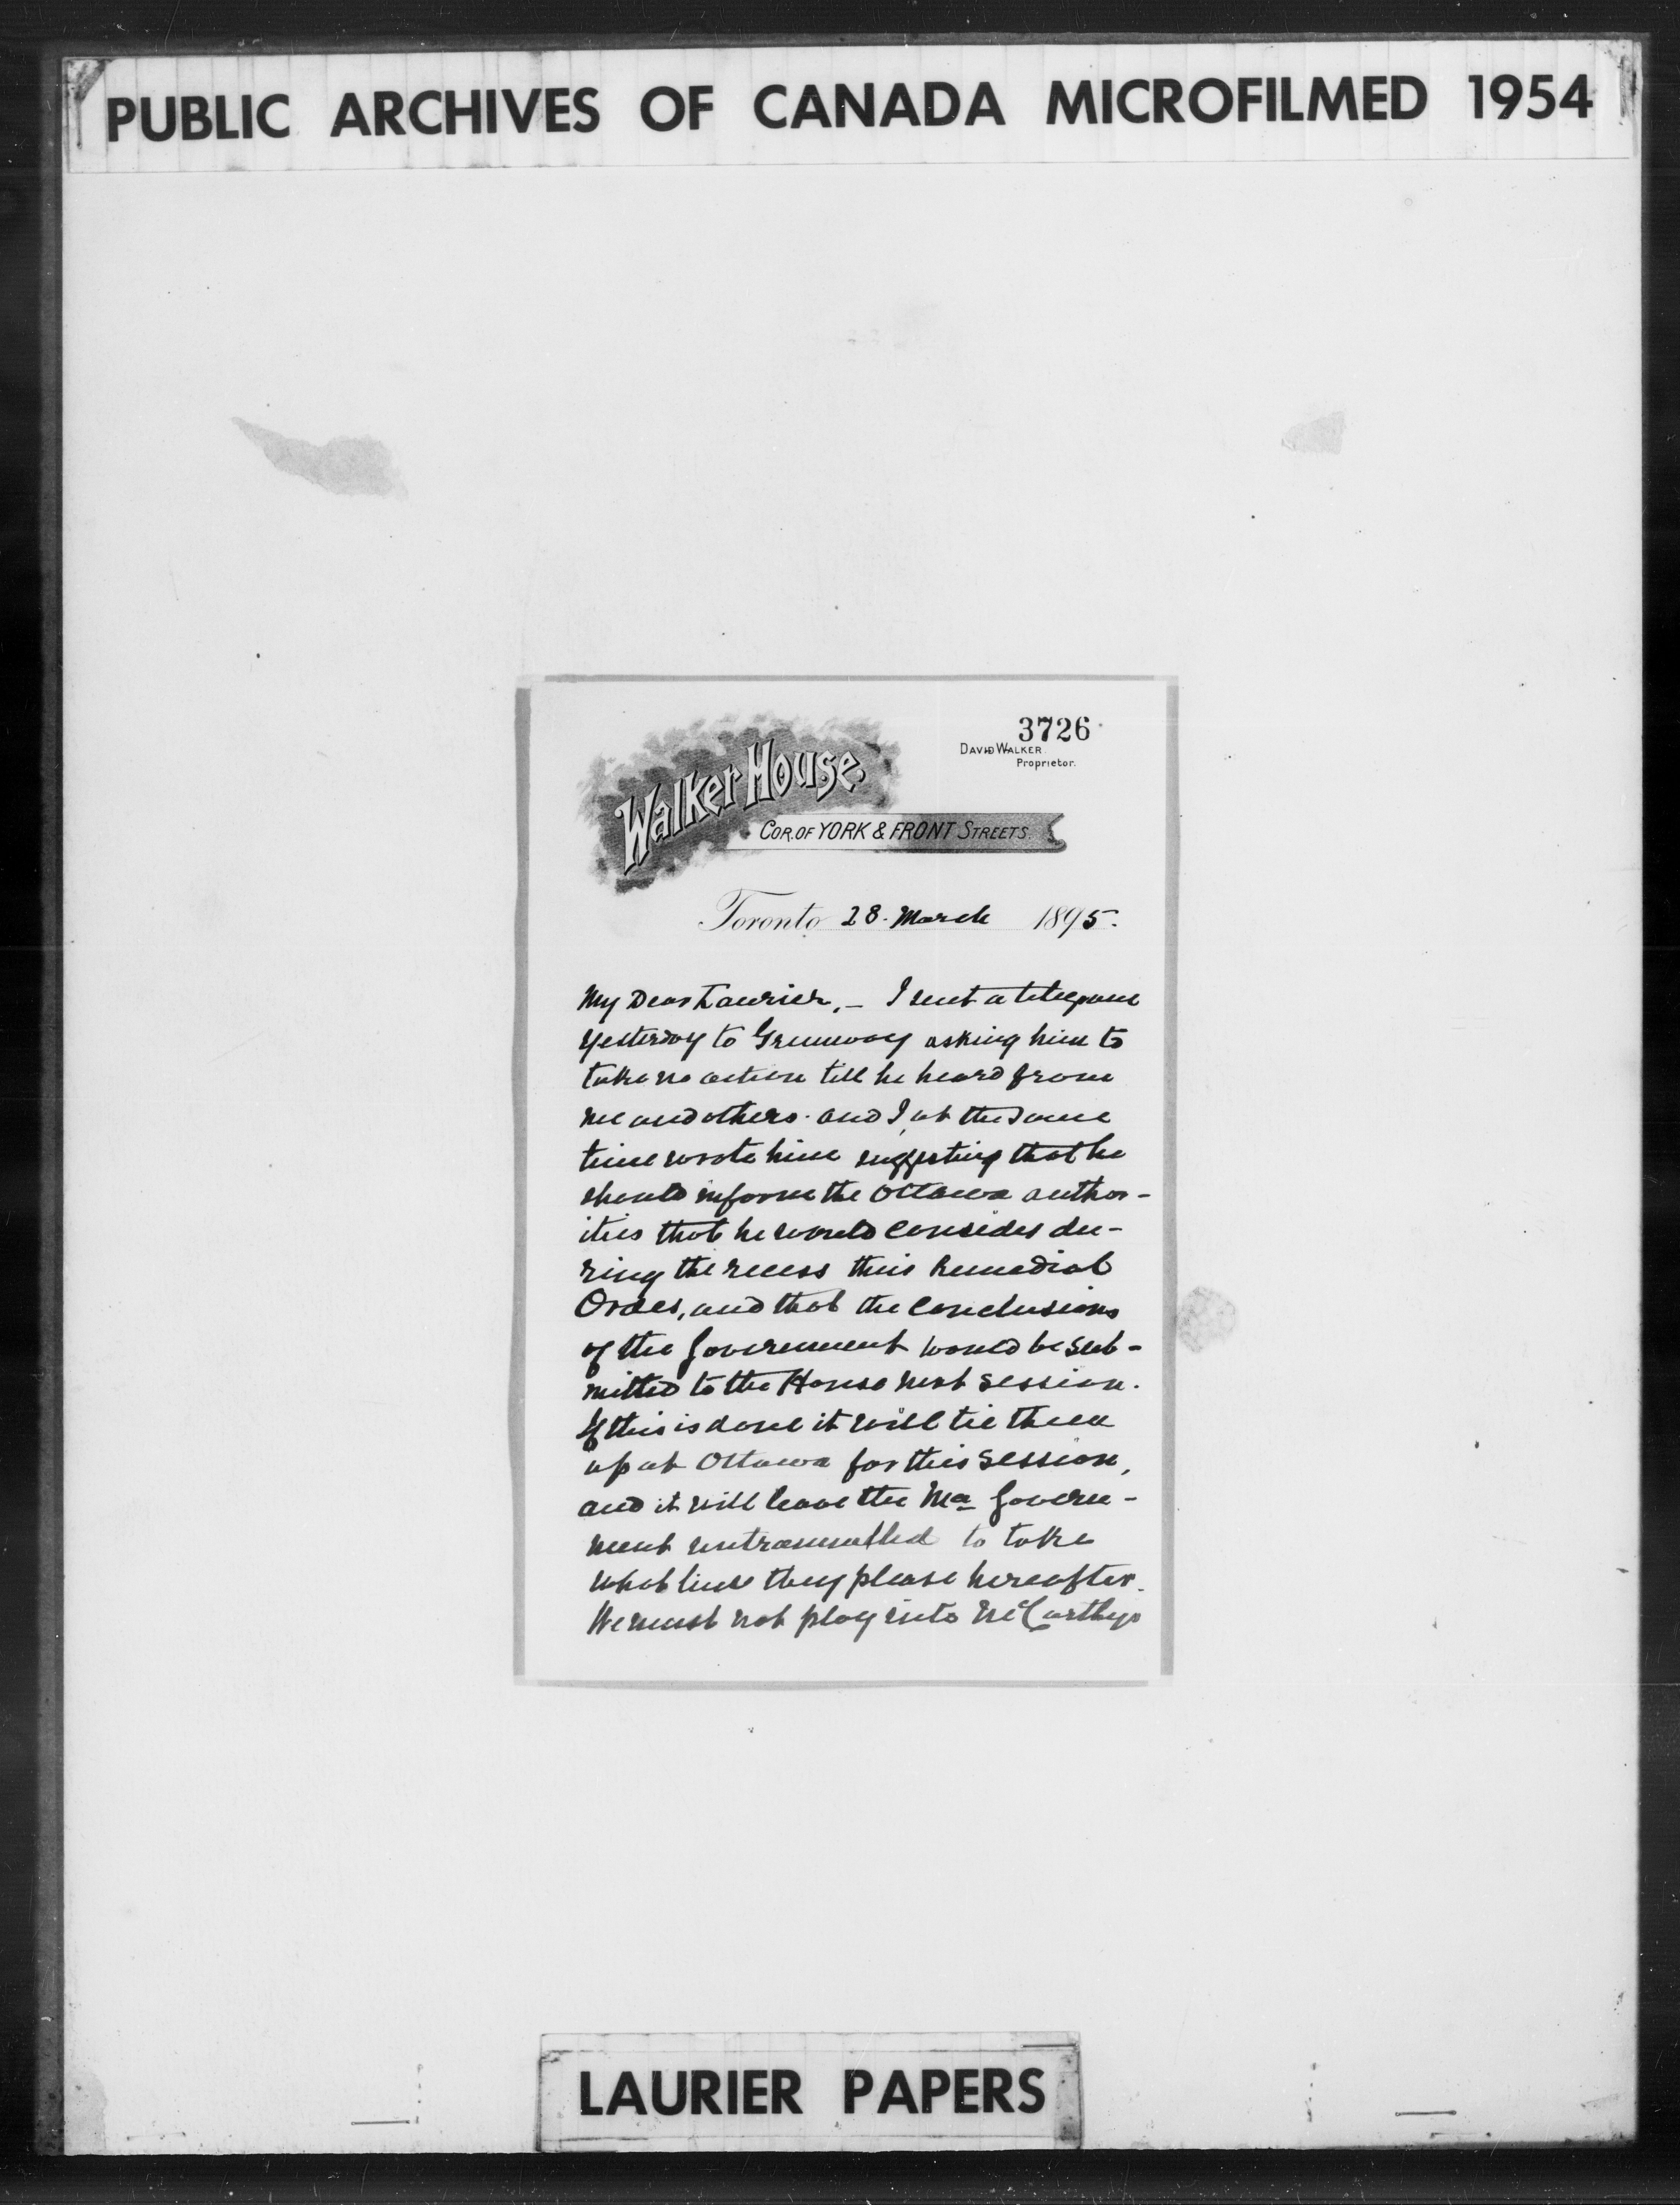 PUBLIC ARCHIVES OF CANADA MICROFILMED 1954
3726
DAVID WALKER.
Proprietor.
Walker House.
COR. OF YORK & FRONT STREETS.
Toronto 28. March 1895.
My Dear Laurier, - I sent a telegram
yesterday to Greenway asking him to
take no action till he heard from
me and others. and I, at the same
time wrote him suggesting that he
should inform the Ottawa author-
ities that he would consider du-
ring the recess this Remedial
Order, and that the conclusions
of the Government would be sub-
mitted to the House next session.
If this is done it will tie them
up at Ottawa for this session,
and it will leave the Ma Govern-
ment untrammelled to take
what line they please hereafter.
We must not play into McCarthys
LAURIER PAPERS